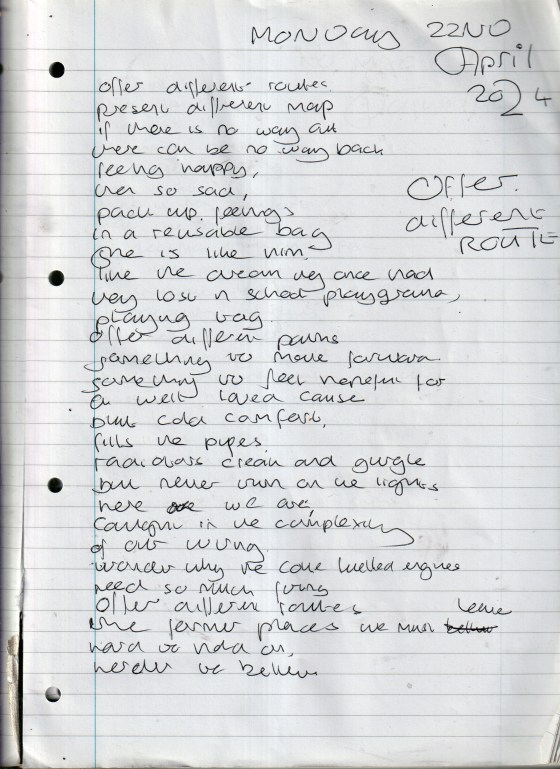 MONDAY 22ND
April
2024
offer different routes
present different map
if there is no way out
there can be no way back
feeling happy,
then so sad,
pack up feelings
in a reusable bag
she is like him
like the dream they once had
they lost in school playground,
playing tag
Offer
different
ROUTE
offer different paths
something to move forward
something to feel hopeful for
a well loved cause
but cold comfort,
fills the pipes
radiators clean and gurgle
but never turn on the lights
here we are,
caught in the complexity
of our wiring
wonder why the coal fuelled engines
need so much fixing
Offer different routes
the former places we must leave
hard to hold on,
harder to believe